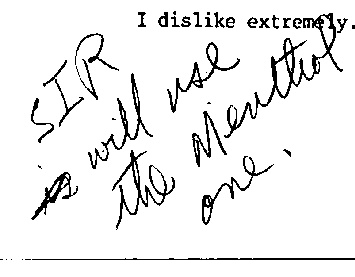 I dislike extremely.
SIR
is will use
the Menthol
one.